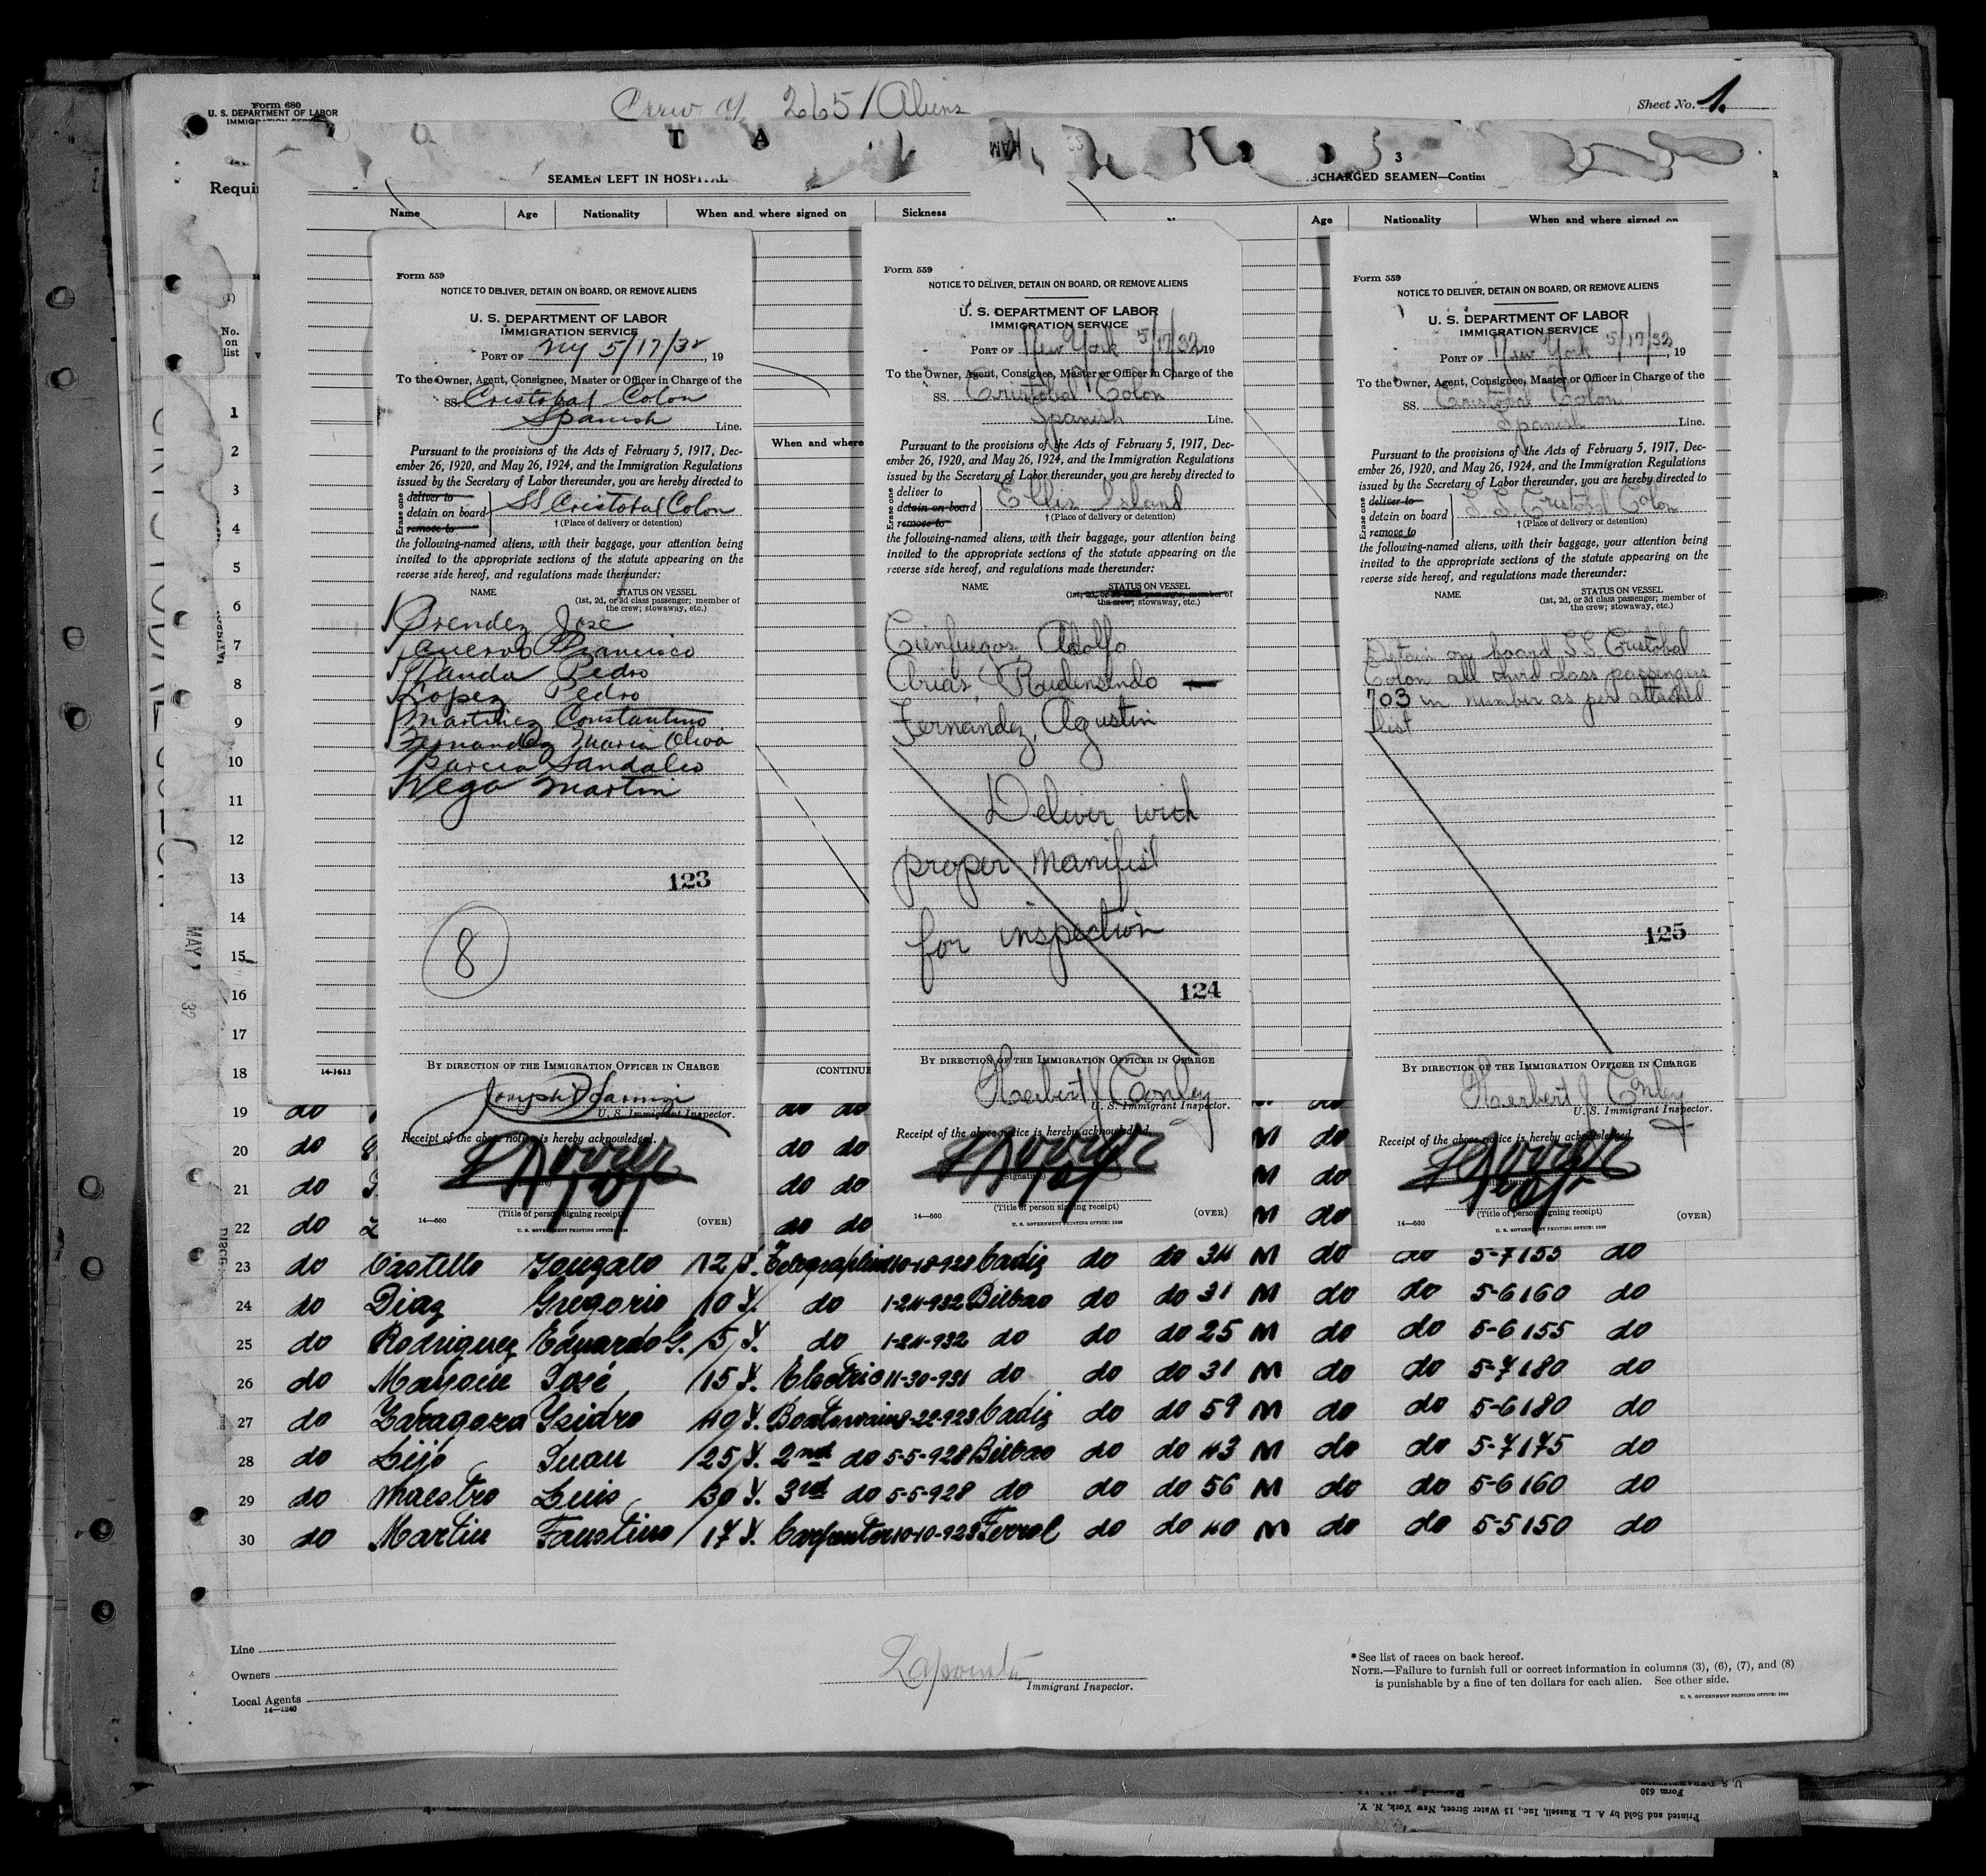 Form 680
U. S. DEPARTMENT OF LABOR
Crew of 265 / Aliens
Sheet No. 1.
3
SEAMEN LEFT IN HOSPITAL
Name Age Nationality When and where signed on Sickness
Age Nationality When and where signed on
No. on list
1
2
3
4
5
6
7
8
9
10
11
12
13
14
15
16
17
18
Form 559
NOTICE TO DELIVER, DETAIN ON BOARD, OR REMOVE ALIENS
U. S. DEPARTMENT OF LABOR
IMMIGRATION SERVICE
PORT OF NY 5/17/32, 19
To the Owner, Agent, Consignee, Master or Officer in Charge of the
SS. Cristobal Colon
Spanish Line.
Pursuant to the provisions of the Acts of February 5, 1917, Dec-
ember 26, 1920, and May 26, 1924, and the Immigration Regulations
issued by the Secretary of Labor thereunder, you are hereby directed to
Erase one
deliver to
detain on board SS Cristobal Colon
remove to
† (Place of delivery or detention)
the following-named aliens, with their baggage, your attention being
invited to the appropriate sections of the statute appearing on the
reverse side hereof, and regulations made thereunder:
NAME STATUS ON VESSEL
(1st, 2d, or 3d class passenger; member of
the crew; stowaway, etc.)
Prendez Jose
Cuervo Francisco
Pedro
Lopez Pedro
Martinez Constantino
Fernandez Maria Oliva
Garcia Sandalio
Vega Martin
123
8
BY DIRECTION OF THE IMMIGRATION OFFICER IN CHARGE
U. S. Immigrant Inspector.
Receipt of the above notice is hereby acknowledged.
(Title of person signing receipt)
14—660 (OVER)
U. S. GOVERNMENT PRINTING OFFICE
Form 559
NOTICE TO DELIVER, DETAIN ON BOARD, OR REMOVE ALIENS
U. S. DEPARTMENT OF LABOR
IMMIGRATION SERVICE
PORT OF New York 5/17/32 19
To the Owner, Agent, Consignee, Master or Officer in Charge of the
SS. Cristobal Colon
Spanish Line.
Pursuant to the provisions of the Acts of February 5, 1917, Dec-
ember 26, 1920, and May 26, 1924, and the Immigration Regulations
issued by the Secretary of Labor thereunder, you are hereby directed to
Erase one
deliver to
detain on board Ellis Island
remove to
† (Place of delivery or detention)
the following-named aliens, with their baggage, your attention being
invited to the appropriate sections of the statute appearing on the
reverse side hereof, and regulations made thereunder:
NAME STATUS ON VESSEL
(1st, 2d, or 3d class passenger; member of
the crew; stowaway, etc.)
Cienfuegos, Adolfo
Arias, Rudensindo
Fernandez, Agustin
Deliver with
proper manifest
for inspection
124
BY DIRECTION OF THE IMMIGRATION OFFICER IN CHARGE
Herbert J Conley
U. S. Immigrant Inspector.
Receipt of the above notice is hereby acknowledged.
(Signature)
(Title of person signing receipt)
14—660 (OVER)
U. S. GOVERNMENT PRINTING OFFICE: 1930
Form 559
NOTICE TO DELIVER, DETAIN ON BOARD, OR REMOVE ALIENS
U. S. DEPARTMENT OF LABOR
IMMIGRATION SERVICE
PORT OF New York 5/17/32, 19
To the Owner, Agent, Consignee, Master or Officer in Charge of the
SS. Cristobal Colon
Spanish Line.
Pursuant to the provisions of the Acts of February 5, 1917, Dec-
ember 26, 1920, and May 26, 1924, and the Immigration Regulations
issued by the Secretary of Labor thereunder, you are hereby directed to
Erase one
deliver to
detain on board S.S. Cristobal Colon
remove to
† (Place of delivery or detention)
the following-named aliens, with their baggage, your attention being
invited to the appropriate sections of the statute appearing on the
reverse side hereof, and regulations made thereunder:
NAME STATUS ON VESSEL
(1st, 2d, or 3d class passenger; member of
the crew; stowaway, etc.)
Detain on board SS Cristobal
Colon all third class passengers
703 in number as per attached
list
125
BY DIRECTION OF THE IMMIGRATION OFFICER IN CHARGE
Herbert J Conley
U. S. Immigrant Inspector.
Receipt of the above notice is hereby acknowledged.
(Title of person signing receipt)
14—660 (OVER)
U. S. GOVERNMENT PRINTING OFFICE: 1930
When and where
14-1613
MAY 32
19 do do do
20 do do do M do
21 do do do M do
22 do do do M do
23 do Castello Gonzalo 12 Y. Telegraphist 10-10-928 Cadiz do do 34 M do do 5-7 155 do
24 do Diaz Gregorio 10 Y. do 1-24-932 Bilbao do do 31 M do do 5-6 160 do
25 do Rodriguez Eduardo G. 5 Y. do 1-24-932 do do do 25 M do do 5-6 155 do
26 do José 15 Y. Electric 11-30-931 do do do 31 M do do 5-7 180 do
27 do Zaragoza Ysidro 40 Y. Boatswain 8-22-923 Cadiz do do 59 M do do 5-6 180 do
28 do Lijo Juan 25 Y. 2nd do 5-5-928 Bilbao do do 43 M do do 5-7 175 do
29 do Maestro Luis 30 Y. 3rd do 5-5-928 do do do 56 M do do 5-6 160 do
30 do Martin Faustino 17 Y. Carpenter 10-10-923 Ferrol do do 40 M do do 5-5 150 do
Line
Owners
Local Agents
14—1240
Immigrant Inspector.
* See list of races on back hereof.
NOTE.—Failure to furnish full or correct information in columns (3), (6), (7), and (8)
is punishable by a fine of ten dollars for each alien. See other side.
U. S. GOVERNMENT PRINTING OFFICE: 1930
Form 630
Printed and Sold by A. L. Russell, Inc., 13 Water Street, New York, N. Y.